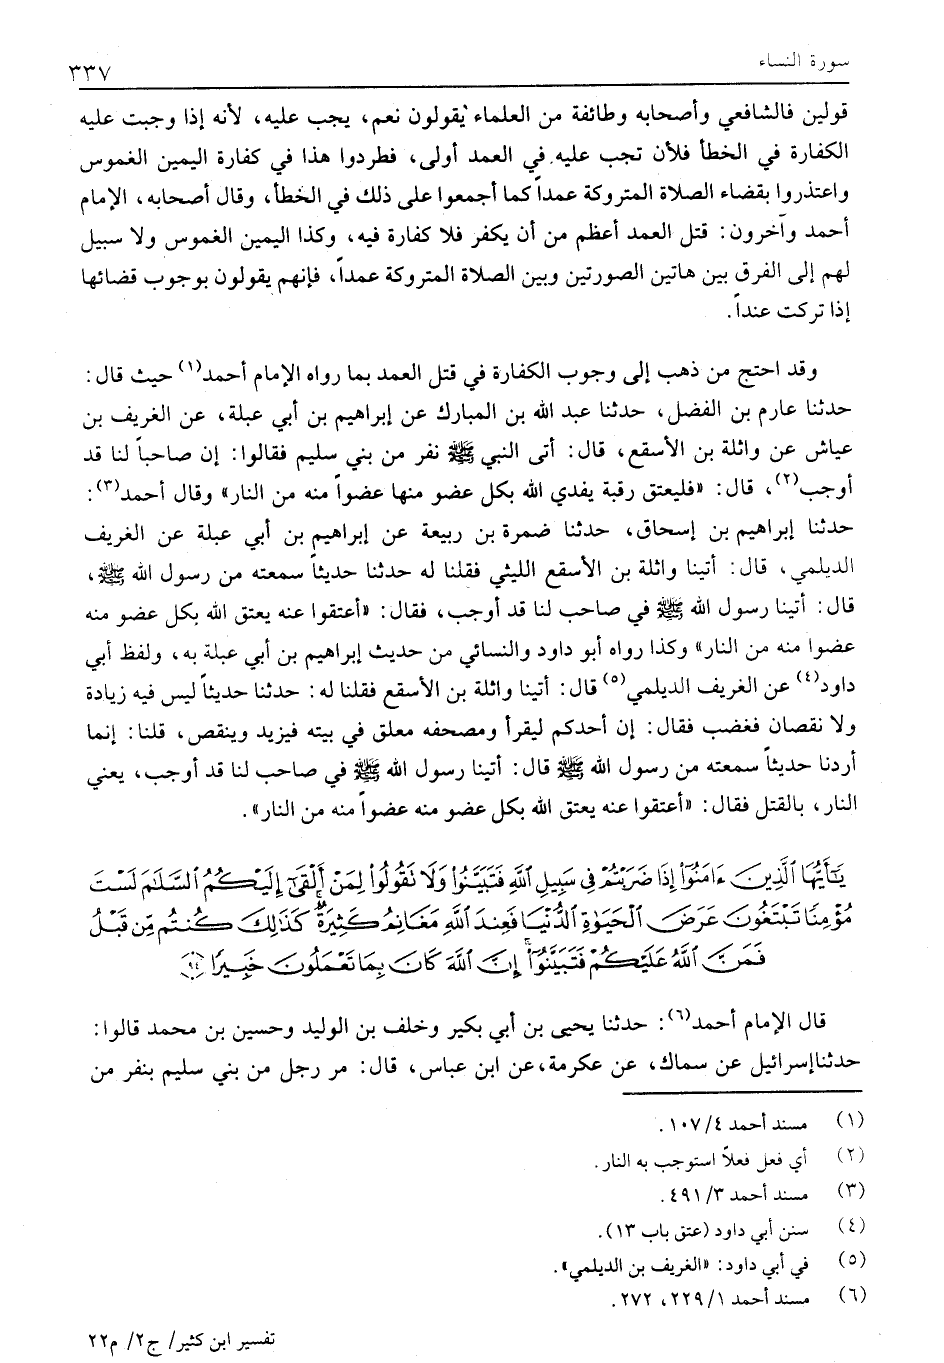 سورة النساء ٣٣٧
قولين فالشافعي وأصحابه وطائفة من العلماء يقولون نعم، يجب عليه، لأنه إذا وجبت عليه
الكفارة في الخطأ فلأن تجب عليه في العمد أولى، فطردوا هذا في كفارة اليمين الغموس
واعتذروا بقضاء الصلاة المتروكة عمداً كما أجمعوا على ذلك في الخطأ، وقال أصحابه، الإمام
أحمد وآخرون: قتل العمد أعظم من أن يكفر فلا كفارة فيه، وكذا اليمين الغموس ولا سبيل
لهم إلى الفرق بين هاتين الصورتين وبين الصلاة المتروكة عمداً، فإنهم يقولون بوجوب قضائها
إذا تركت عنداً.
وقد احتج من ذهب إلى وجوب الكفارة في قتل العمد بما رواه الإمام أحمد(١) حيث قال:
حدثنا عارم بن الفضل، حدثنا عبد الله بن المبارك عن إبراهيم بن أبي عبلة، عن الغريف بن
عياش عن واثلة بن الأسقع، قال: أتى النبي ﷺ نفر من بني سليم فقالوا: إن صاحباً لنا قد
أوجب(٢)، قال: «فليعتق رقبة يفدي الله بكل عضو منها عضواً منه من النار» وقال أحمد(٣):
حدثنا إبراهيم بن إسحاق، حدثنا ضمرة بن ربيعة عن إبراهيم بن أبي عبلة عن الغريف
الديلمي، قال: أتينا واثلة بن الأسقع الليثي فقلنا له حدثنا حديثاً سمعته من رسول الله ﷺ،
قال: أتينا رسول الله ﷺ في صاحب لنا قد أوجب، فقال: «أعتقوا عنه يعتق الله بكل عضو منه
عضوا منه من النار» وكذا رواه أبو داود والنسائي من حديث إبراهيم بن أبي عبلة به، ولفظ أبي
داود(٤) عن الغريف الديلمي(٥) قال: أتينا واثلة بن الأسقع فقلنا له: حدثنا حديثاً ليس فيه زيادة
ولا نقصان فغضب فقال: إن أحدكم ليقرأ ومصحفه معلق في بيته فيزيد وينقص، قلنا: إنما
أردنا حديثاً سمعته من رسول الله ﷺ قال: أتينا رسول الله ﷺ في صاحب لنا قد أوجب، يعني
النار، بالقتل فقال: «أعتقوا عنه يعتق الله بكل عضو منه عضواً منه من النار».
يَـٰٓأَيُّهَا ٱلَّذِينَ ءَامَنُوٓا۟ إِذَا ضَرَبْتُمْ فِى سَبِيلِ ٱللَّهِ فَتَبَيَّنُوا۟ وَلَا تَقُولُوا۟ لِمَنْ أَلْقَىٰٓ إِلَيْكُمُ ٱلسَّلَـٰمَ لَسْتَ
مُؤْمِنًا تَبْتَغُونَ عَرَضَ ٱلْحَيَوٰةِ ٱلدُّنْيَا فَعِندَ ٱللَّهِ مَغَانِمُ كَثِيرَةٌ ۚ كَذَٰلِكَ كُنتُم مِّن قَبْلُ
فَمَنَّ ٱللَّهُ عَلَيْكُمْ فَتَبَيَّنُوٓا۟ ۚ إِنَّ ٱللَّهَ كَانَ بِمَا تَعْمَلُونَ خَبِيرًا ٩٤
قال الإمام أحمد(٦): حدثنا يحيى بن أبي بكير وخلف بن الوليد وحسين بن محمد قالوا:
حدثناإسرائيل عن سماك، عن عكرمة، عن ابن عباس، قال: مر رجل من بني سليم بنفر من
(١) مسند أحمد ٤/ ١٠٧.
(٢) أي فعل فعلاً استوجب به النار.
(٣) مسند أحمد ٣/ ٤٩١.
(٤) سنن أبي داود (عتق باب ١٣).
(٥) في أبي داود: «الغريف بن الديلمي».
(٦) مسند أحمد ١/ ٢٢٩، ٢٧٢.
تفسير ابن كثير/ ج٢/ م٢٢